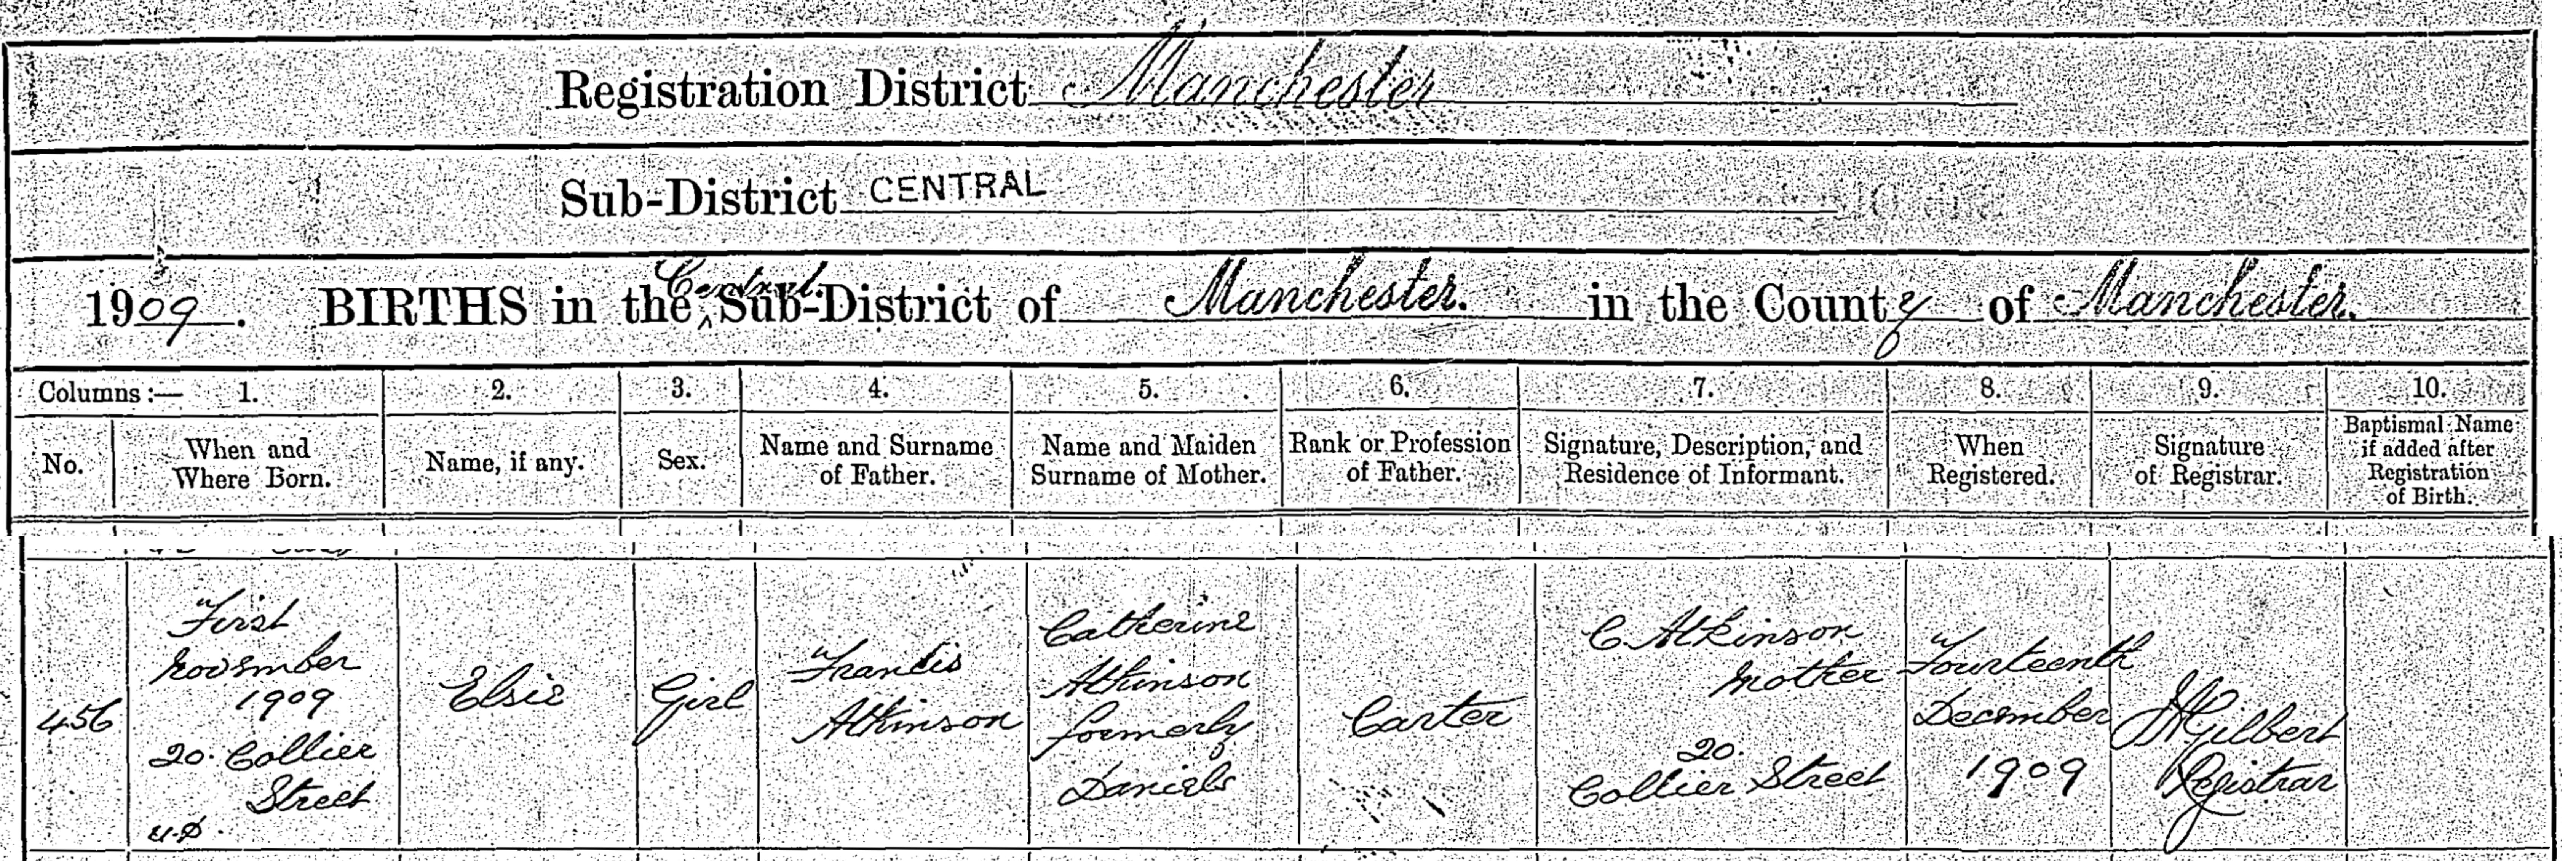 Registration District Manchester
Sub-District CENTRAL
1909. BIRTHS in the Central Sub-District of Manchester. in the County of Manchester.
Columns :— 1. 2. 3. 4. 5. 6. 7. 8. 9. 10.
No.
When and
Where Born.
Name, if any.
Sex.
Name and Surname
of Father.
Name and Maiden
Surname of Mother.
Rank or Profession
of Father.
Signature, Description, and
Residence of Informant.
When
Registered.
Signature
of Registrar.
Baptismal Name
if added after
Registration
of Birth.
456
First
November
1909
20. Collier
Street
u.D.
Elsie
Girl
Francis
Atkinson
Catherine
Atkinson
formerly
Daniels
Carter
C. Atkinson
Mother
20.
Collier Street
Fourteenth
December
1909
Gilbert
Registrar